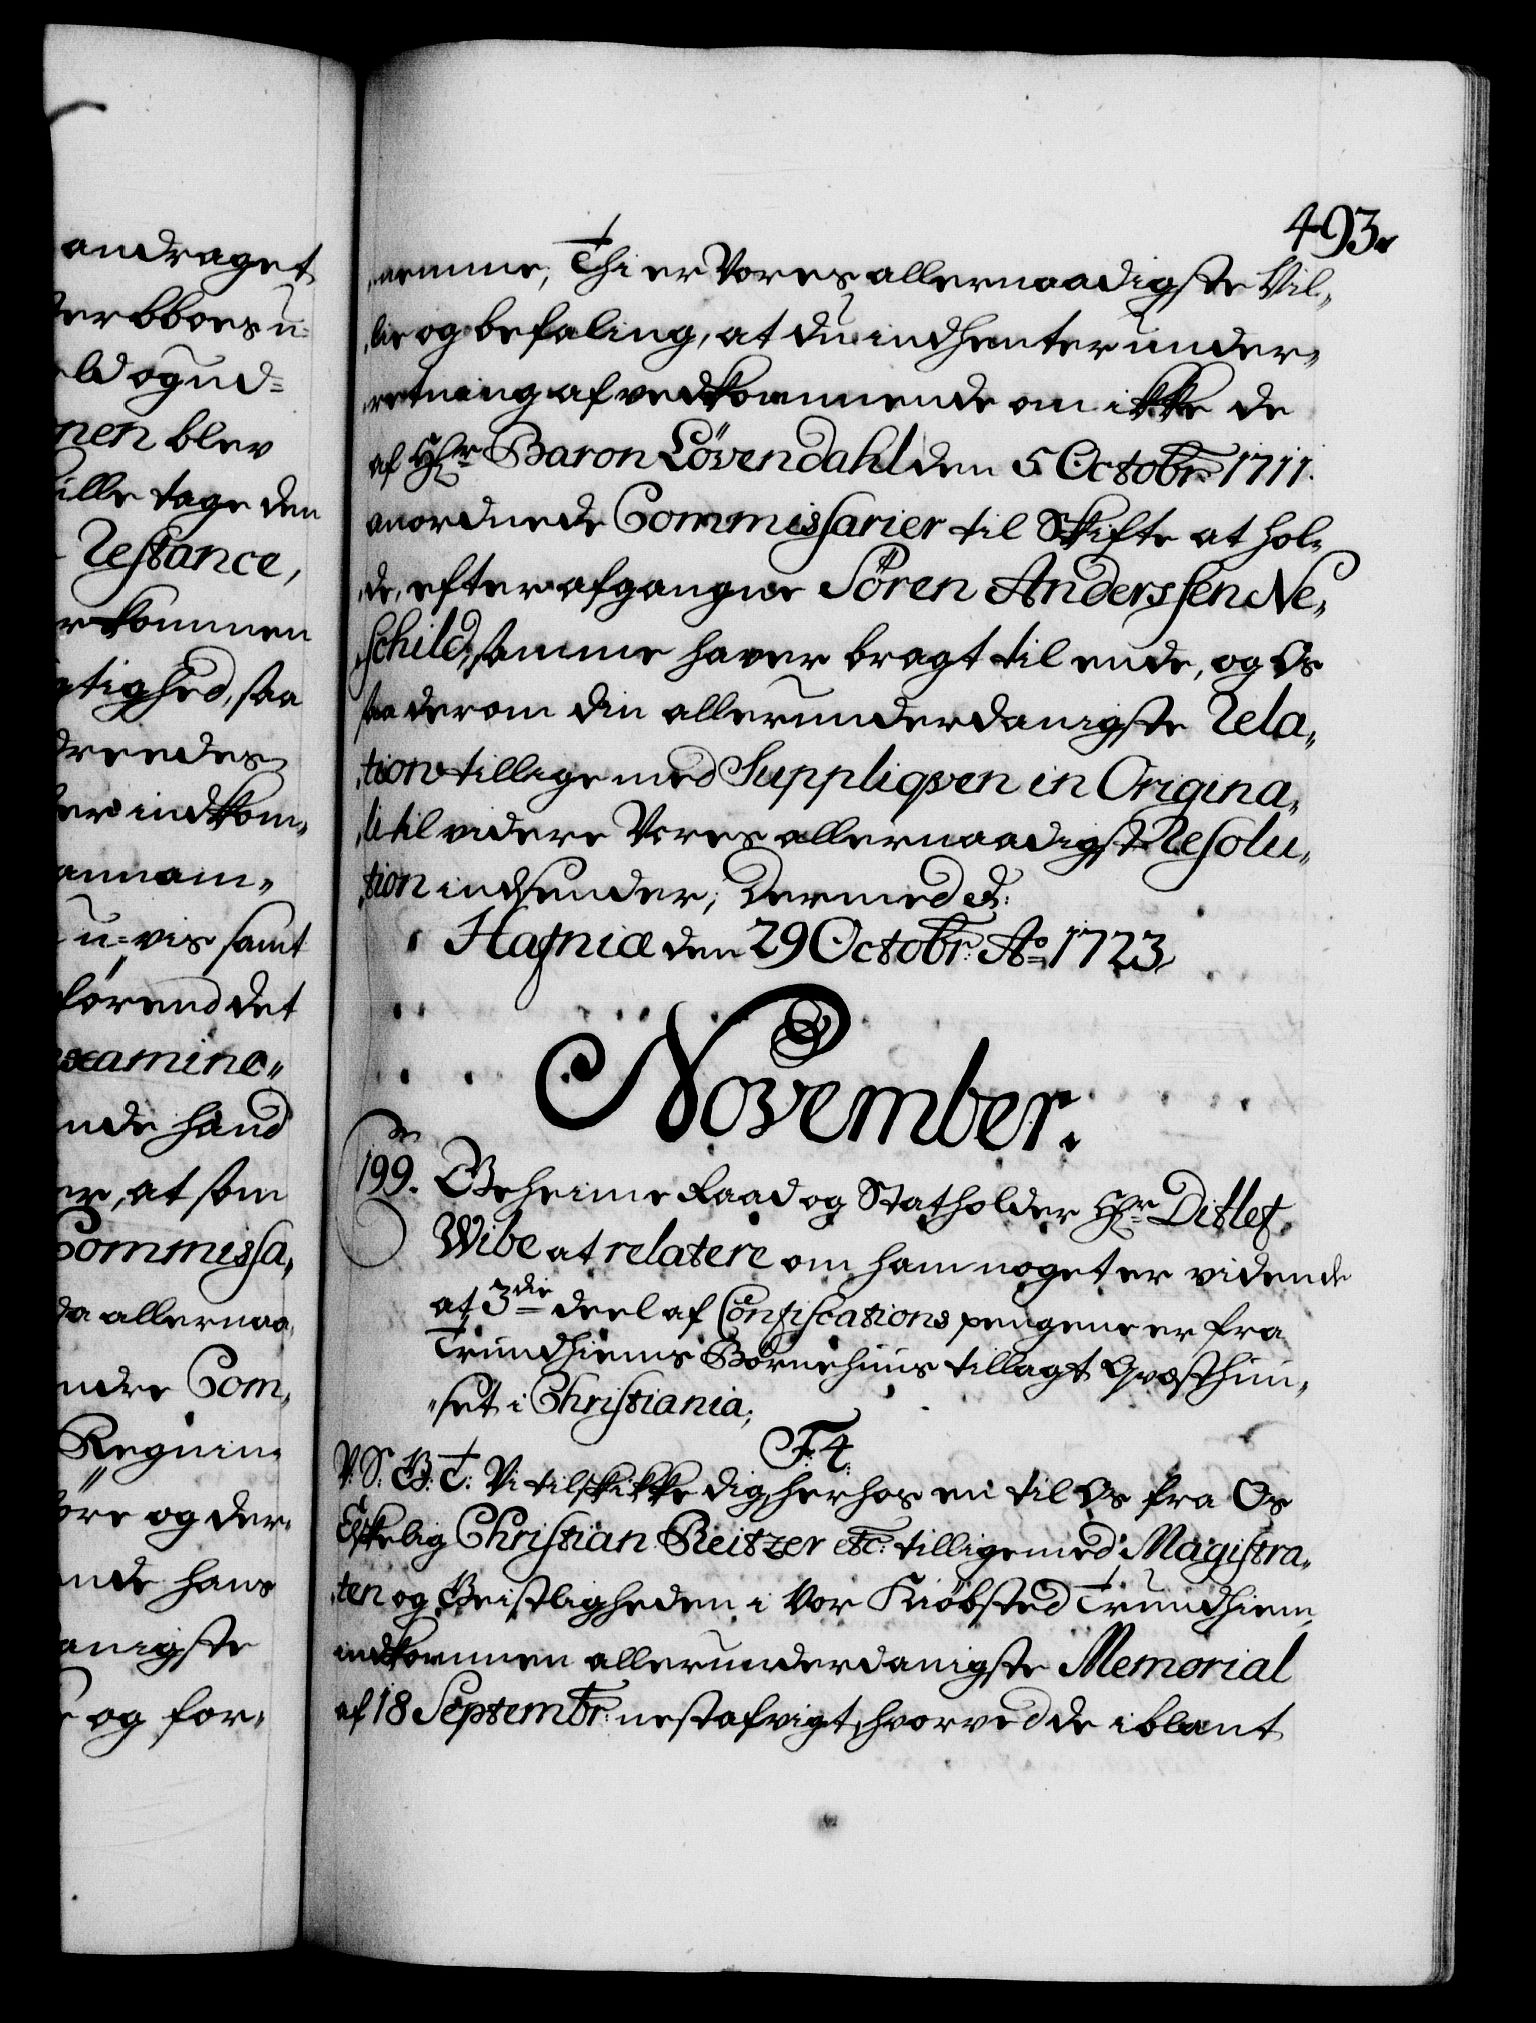 andraget
terbboes u-
eld og ud-
nen blev
ille tage den
Restance,
er kommen
gtighed, saa
dreedes
der indkom-
annam-
u-vis samt
förend det
examine-
ende hand
er, at som
Commissa-
da allernaa-
ndre Com-
Regnin-
före og der-
nde hans
danigste
og for-
493.
nemme, Thi er Vores allernaadigste Vil-
lie og befaling, at du indhenter under-
retning af vedkommende om ikke de
af Hr Baron Lövendahl den 5 Octobr: 1711.
anordnede Commissarier til Skifte at hol-
de, efter afgangne Sören Anderssen Ne-
schild, samme haver bragt til ende, og Os
saa derom din allerunderdanigste Rela-
tion tillige med Suppliqven in Origina-
li til videre Vores allernaadigst Resolu-
tion indsender, Dermed etc:
Hafniæ den 29 Octobr: Ao 1723
November.
199. Geheime Raad og Statholder Hr Ditlef
Wibe at relatere om ham noget er vidende
at 3die deel af Confiscations pengene er fra
Trundhiems Börnehuus tillagt Qvæsthuu-
set i Christiania;
F: 4.
V: S: G: T: Vi tilskikke dig herhos en til Os fra Os
Elskelig Christian Reitzer etc: tillige med Magistra-
ten og Geistligheden i Vor Kiöbsted Trundhiem
indkommen allerunderdanigste Memorial
af 18 Septembr: nest afvigt, hvorved de iblant